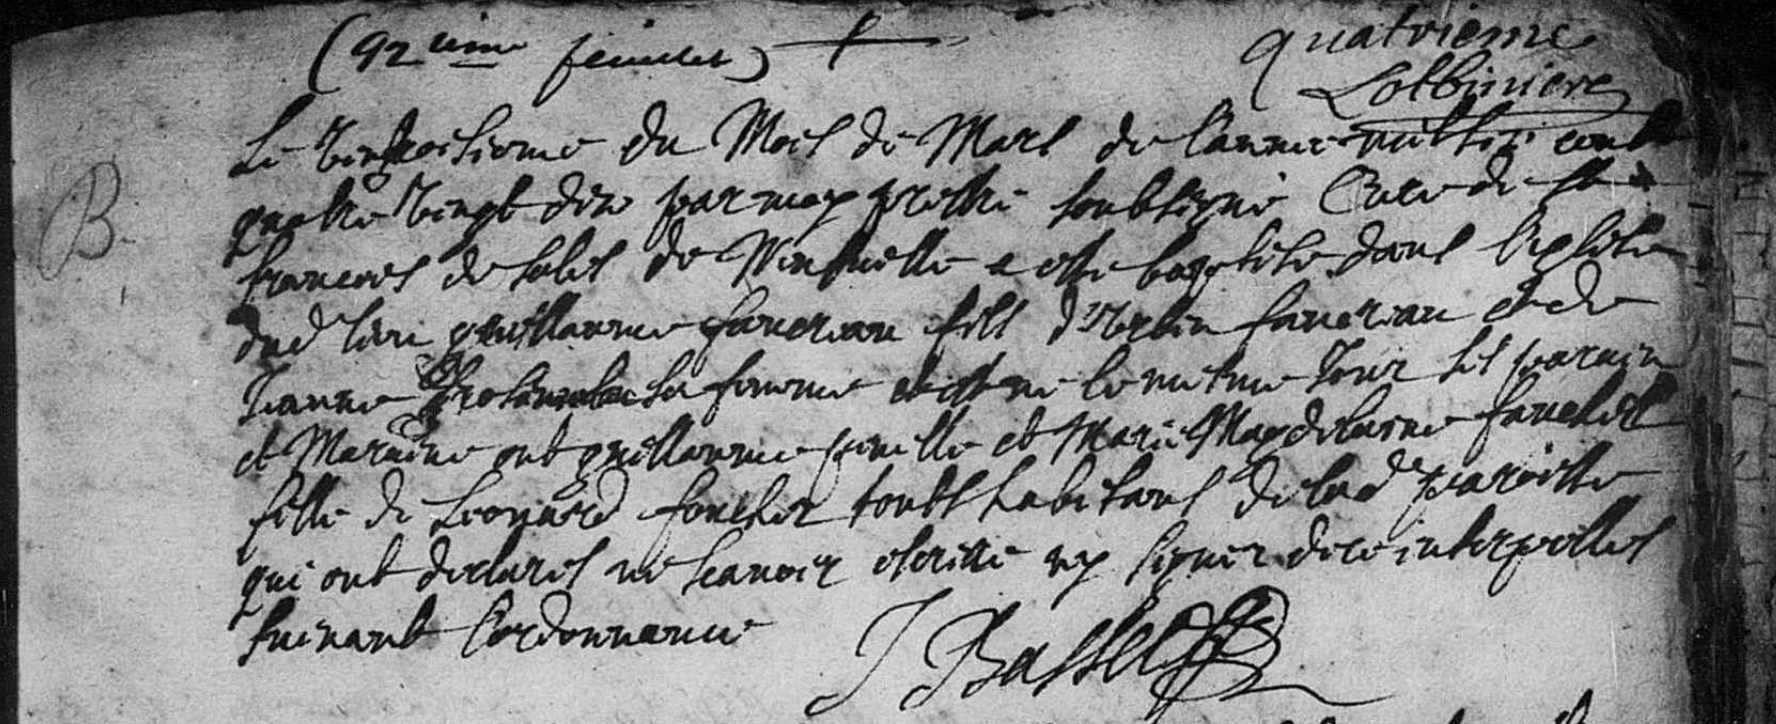 (92ieme feuillet)
quatrieme
Lotbiniere
B.
Le vingtroisieme du Mois de Mars de l'annee mil six cent
quatre vingt dix par moy prestre soubsigné Curé de St
francois de sales de Neufuille a esté baptisé dans l'eglise
dud lieu guillaume faucreau fils d'Urbin faucreau et de
Jeanne sa femme et est né le mesme Jour ses parain
et Maraine ont guillaume et Marie Magdelaine faucher
fille de Leonard foucher touts habitans de lad paroisse
qui ont declares ne scauoir escrire ny signer de ce interpelles
suiuant l'ordonnance
J Basset